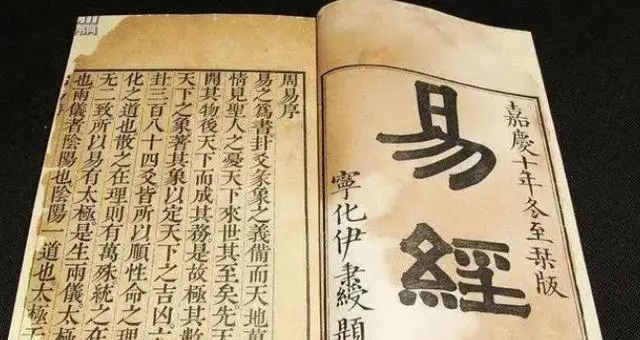 嘉慶十年冬至栞版
易經
寧化伊秉綬題
周易序
易之爲書卦爻彖象之義備而天地萬
情見聖人之憂天下來世其至矣先天
開其物後天下而成其務是故極其數
天下之象著其象以定天下之吉凶六
卦三百八十四爻皆所以順性命之
化之道也散之在理則有萬殊統之在
無二致所以易有太極是生兩儀太極
也兩儀者陰陽也陰陽一道也太極无